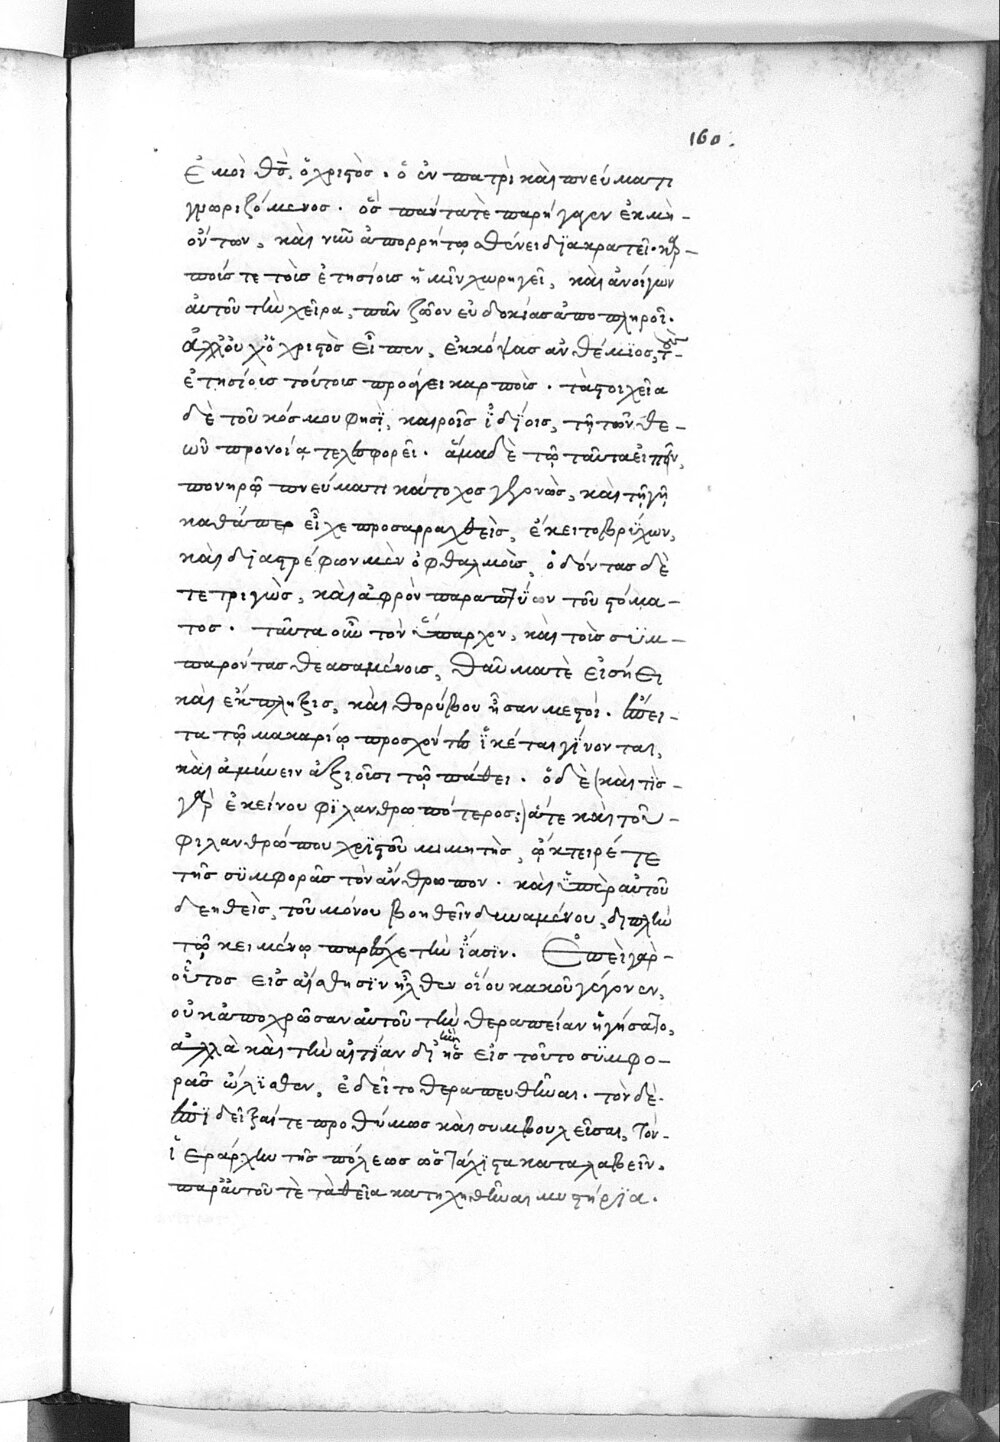 160.
ἐμοὶ θς, ὁ χριστὸς· ὁ ἐν πατρὶ καὶ πνεύματι
γνωριζόμενος· ὃς πάντα τὲ παρήγαγεν ἐκ μὴ-
ὄντων, καὶ νῦν ἀπορρήτῳ σθένει διακρατεῖ· καρ-
ποῖς τε τοῖς ἐτησίοις ἡμῖν χορηγεῖ, καὶ ἀνοίγων
αὐτοῦ τὴν χεῖρα, πᾶν ζῶον εὐδοκίας ἀποπληροῖ.
ἀλλ' οὐχ ὁ χριστὸς εἶπεν, ἐκκόψας ἀνθέμιος, τοὺς-
ἐτησίοις τούτοις προάγει καρποῖς· τὰ στοιχεῖα
δὲ τοῦ κόσμου φησὶ, καιροῖς ἰδίοις, τῇ τῶν θε-
ῶν προνοίᾳ τελεσφορεῖ· ἅμα δὲ τῷ ταῦτα εἰπεῖν,
πονηρῷ πνεύματι κάτοχος γεγονὼς, καὶ τῇ γῇ
καθάπερ εἶχε προσαρραχθεὶς, ἔκειτο βρύχων,
καὶ διαστρέφων μὲν ὀφθαλμοὺς, ὀδόντας δὲ
τετριγὼς, καὶ ἀφρὸν παραπτύων τοῦ στόμα-
τος· ταῦτα οὖν τὸν ὕπαρχον, καὶ τοὺς συμ-
παρόντας θεασαμένοις, θαῦμα τὲ εἰσήει
καὶ ἔκπληξις, καὶ θορύβου ἦσαν μεστοί· ἔπει-
τα τῷ μακαρίῳ προσχόντες ἱκέται γίνονται,
καὶ ἀμύνειν ἀξιοῦσι τῷ πάθει· ὁ δὲ (καὶ τίς-
γὰρ ἐκείνου φιλανθρωπότερος;) ἅτε καὶ τοῦ-
φιλανθρώπου χριστοῦ μιμητὴς, ᾤκτειρέ τε
τῆς συμφορᾶς τὸν ἄνθρωπον· καὶ ὑπὲρ αὐτοῦ
δεηθεὶς, τοῦ μόνου βοηθεῖν δυναμένου, διπλῆν
τῷ κειμένῳ παρέσχε τὴν ἴασιν. Ἐπεὶ γὰρ-
οὗτος εἰς αἴσθησιν ἦλθεν οἵου κακοῦ γέγονεν,
οὐκ ἀποχρῶσαν αὐτοῦ τὴν θεραπείαν ἡγήσατο,
ἀλλὰ καὶ τὴν αἰτίαν δι' ἧς εἰς τοῦτο συμφο-
ρᾶς ὠλίσθεν, ἐδεῖτο θεραπευθῆναι· τὸν δὲ-
ἐπιδεῖξαί τε προθύμως καὶ συμβουλεῦσαι, τὸν-
ἱεράρχην τῆς πόλεως ὡς τάχιστα καταλαβεῖν·
παρ' αὐτοῦ τὲ τὰ θεῖα κατηχηθῆναι μυστήρια.